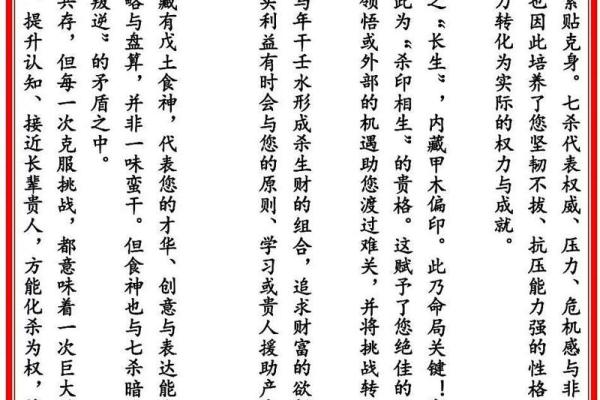 紧贴克身。七杀代表权威、压力、危机感与非
也因此培养了您坚韧不拔、抗压能力强的性格
力转化为实际的权力与成就。
之“长生”，内藏甲木偏印。此乃命局关键！
此为“杀印相生”的贵格。这赋予了您绝佳的
领悟或外部的机遇助您渡过难关，并将挑战转
与年干壬水形成杀生财的组合，追求财富的欲
实利益有时会与您的原则、学习或贵人援助产
藏有戊土食神，代表您的才华、创意与表达能
略与盘算，并非一味蛮干。但食神也与七杀暗
叛逆”的矛盾之中。
共存，但每一次克服挑战，都意味着一次巨大
、提升认知、接近长辈贵人，方能化杀为权，